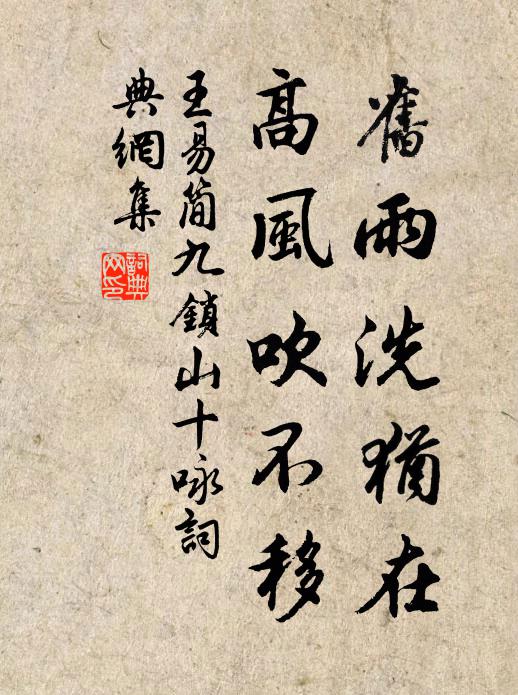 舊雨洗猶在
高風吹不移
王易简九鎖山十咏詞
典網集
詞典
网印